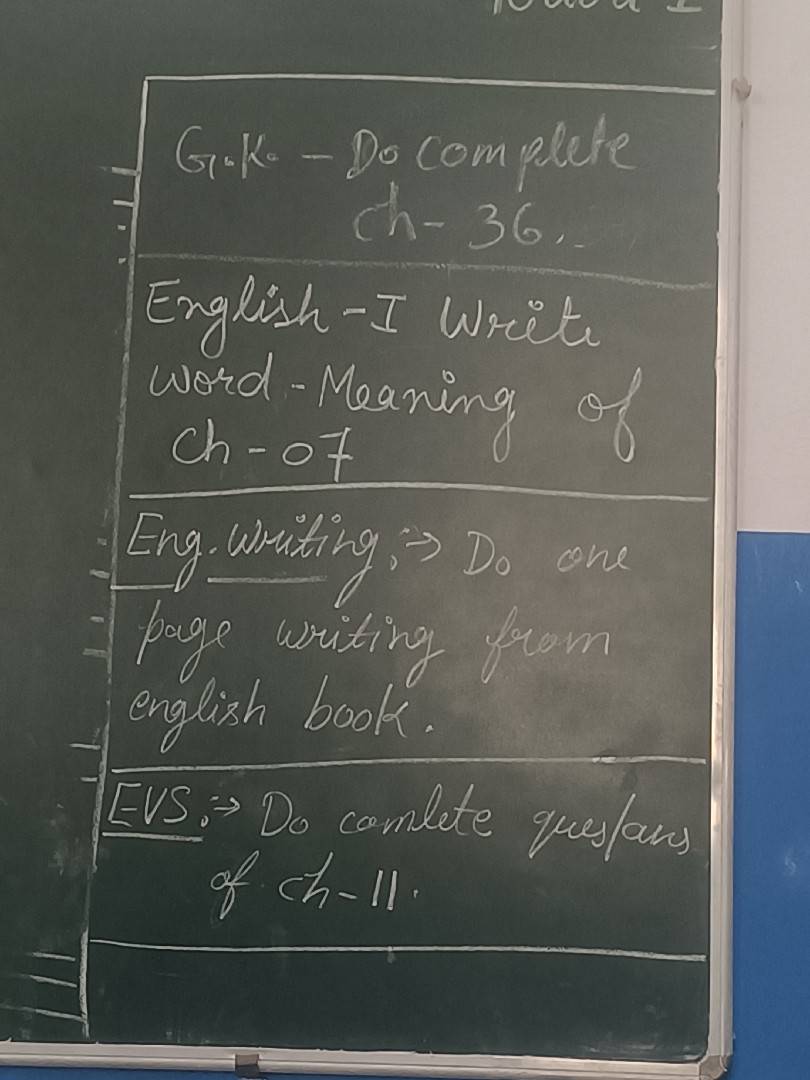 G.K. - Do complete
ch- 36.
English - I Write
word - Meaning of
Ch - 07
Eng. Writing :→ Do one
page writing from
english book.
EVS :→ Do comlete ques/ans
of ch-11.